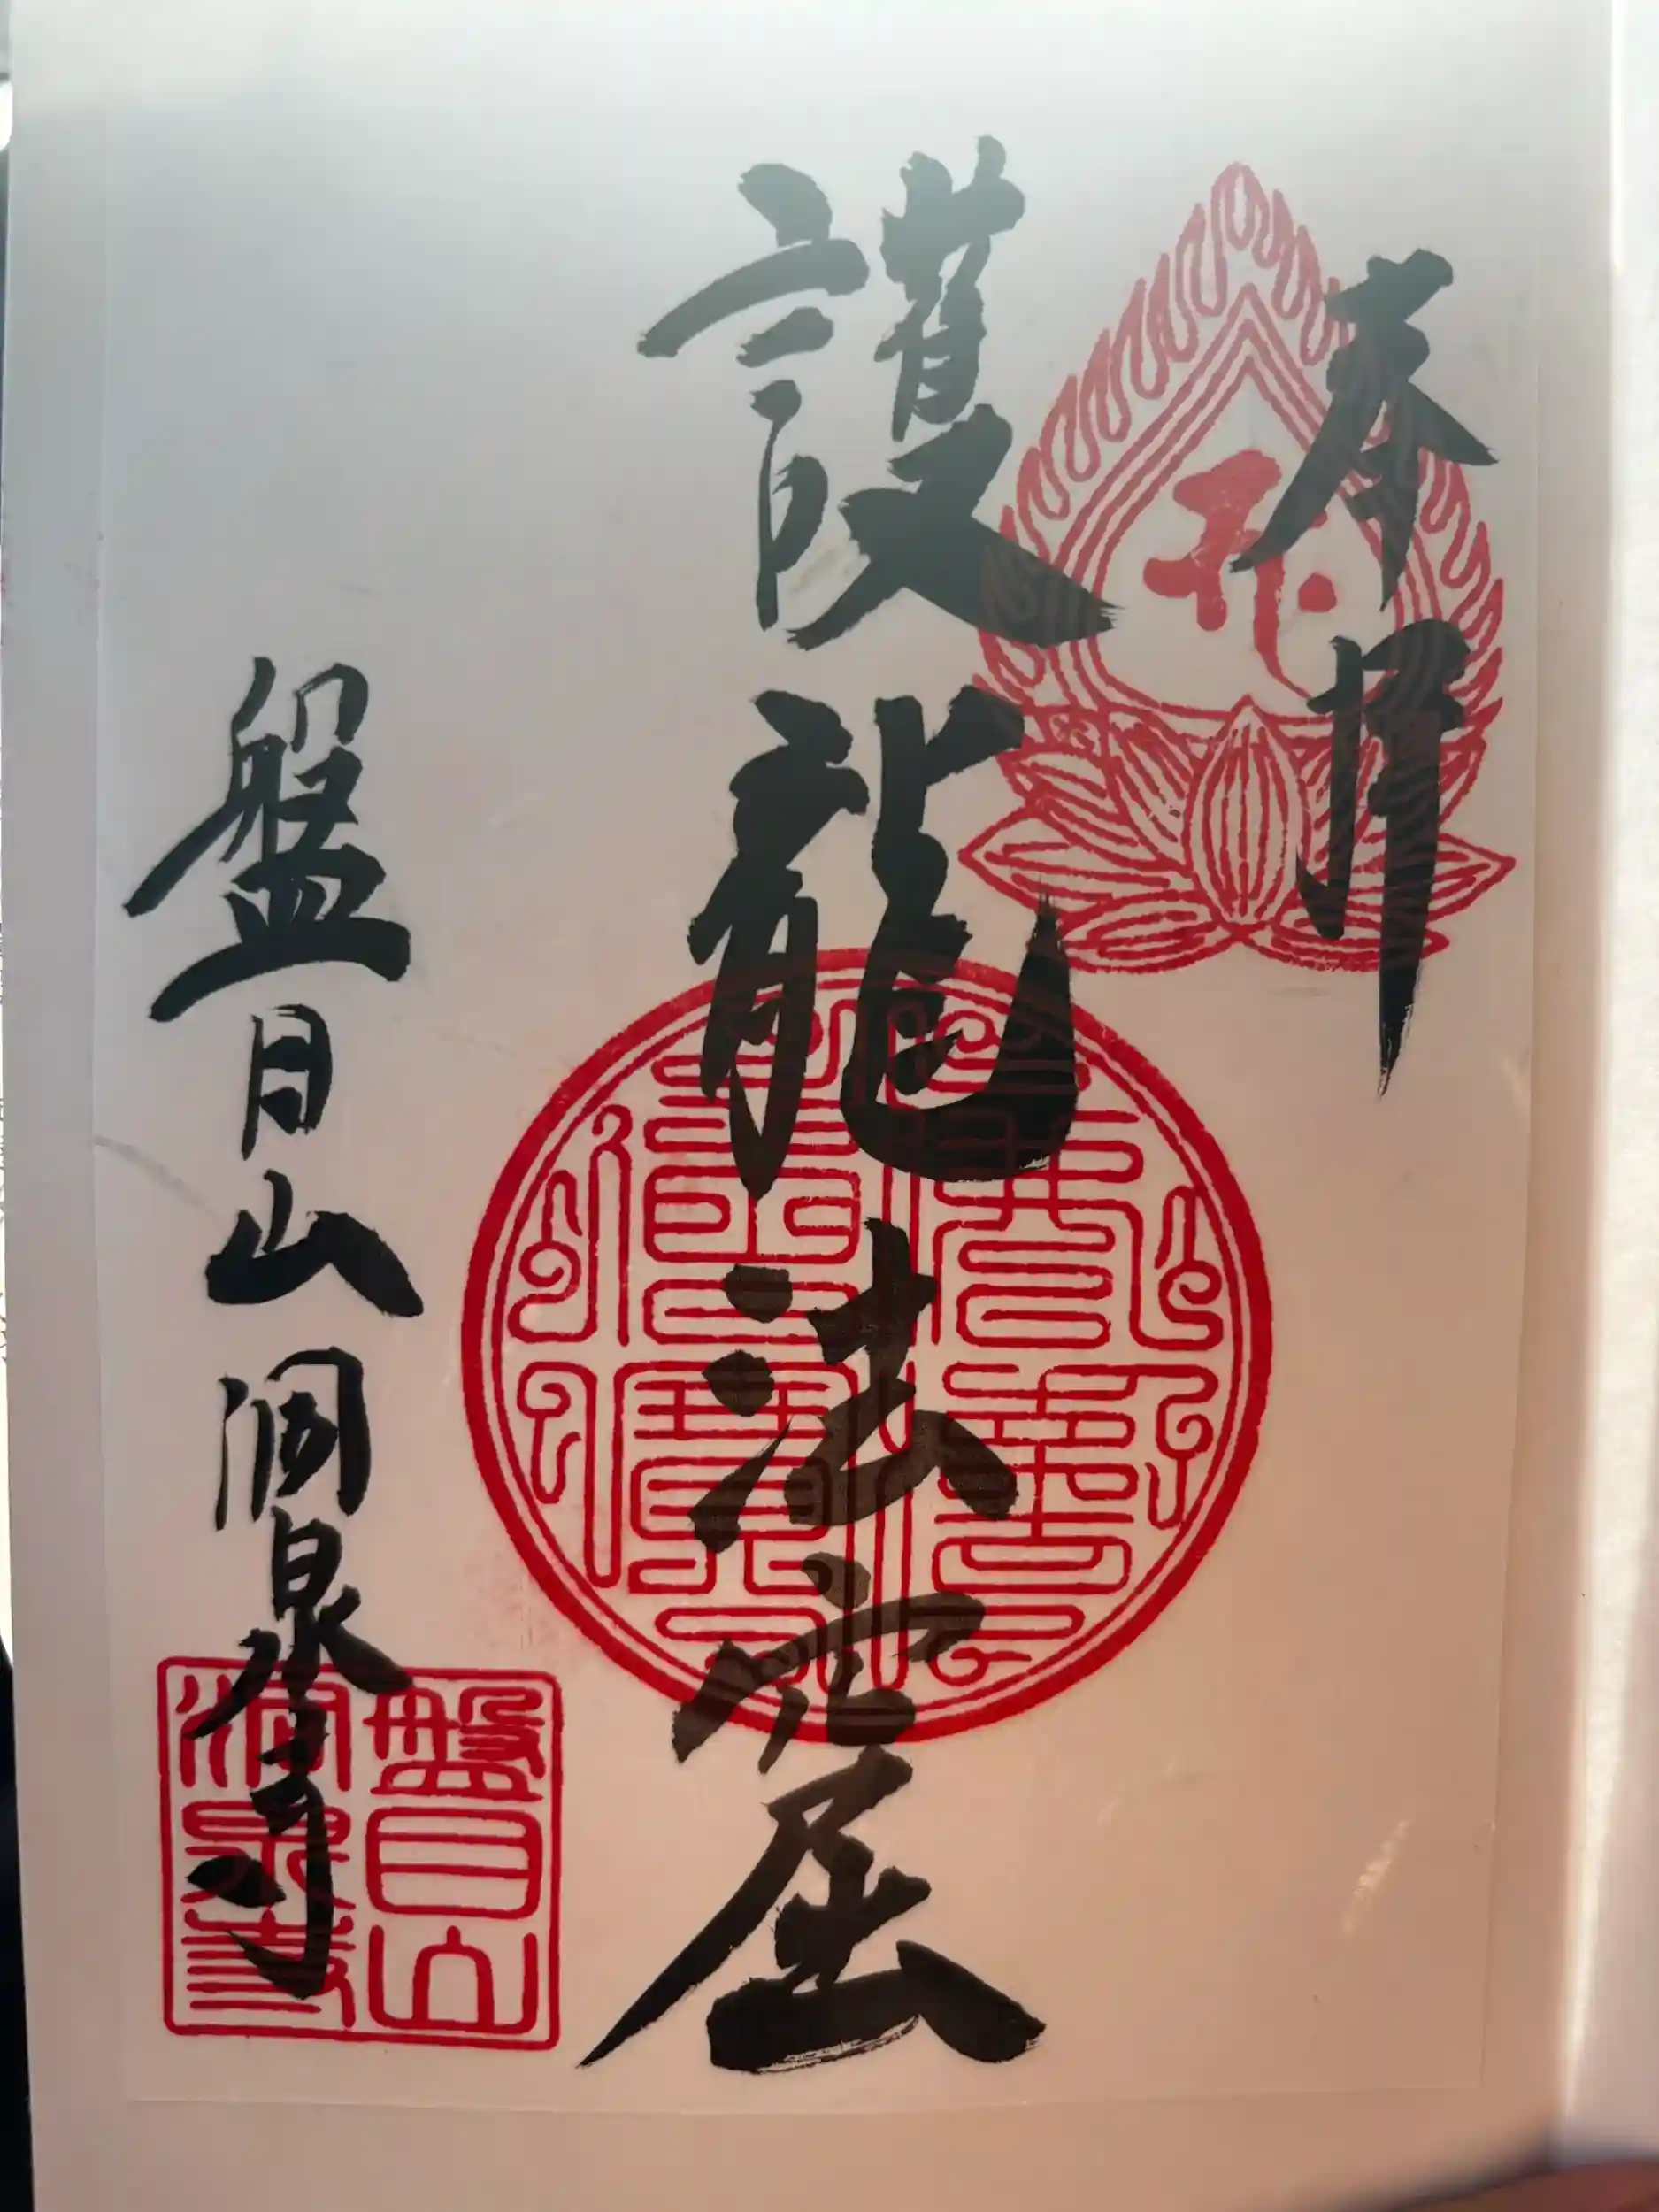 奉拝
護龍法窟
盤日山 洞泉寺
盤日山
洞泉寺